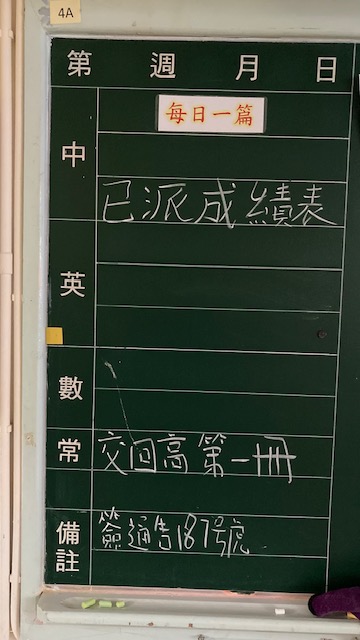 4A
第 週 月 日
每日一篇
中
已派成績表
英
數
常 交回高第一冊
備註 簽通告187號